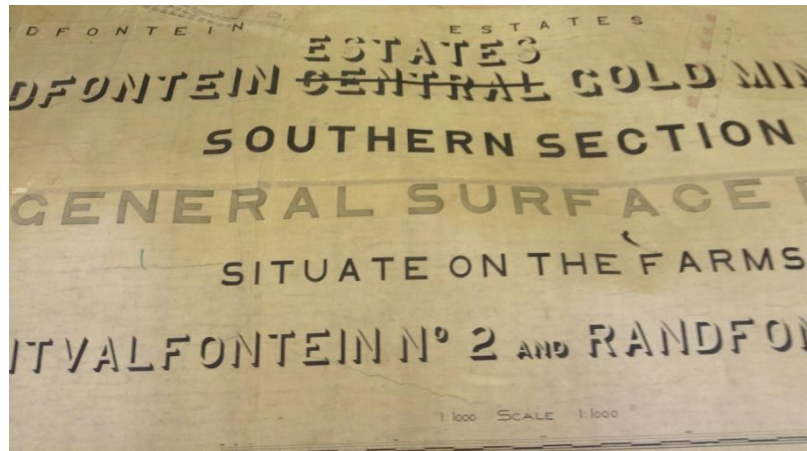 DFONTEIN ESTATES
ESTATES
DFONTEIN CENTRAL GOLD MIN
SOUTHERN SECTION
GENERAL SURFACE
SITUATE ON THE FARMS
ITVALFONTEIN Nº 2 AND RANDFO
1:1000 SCALE 1:1000